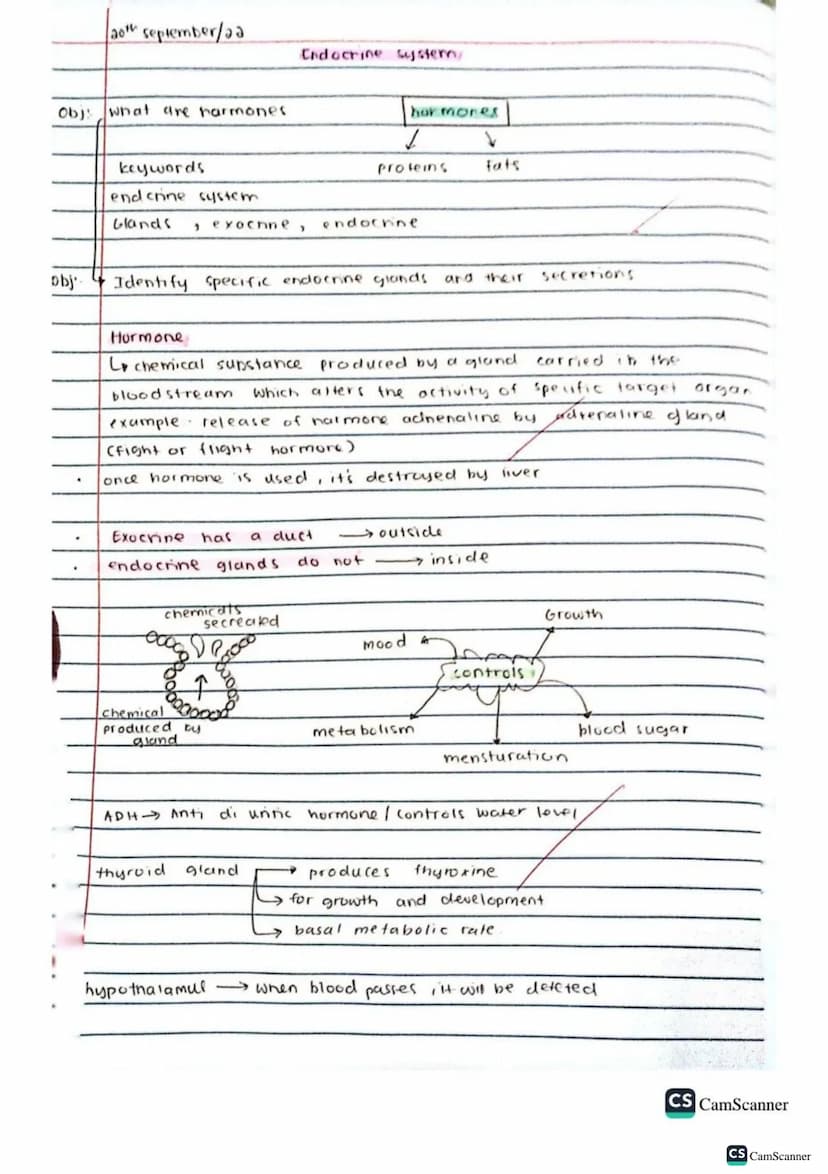 20th september/22
Endocrine system
Obj: what are hormones
hormones
keywords
proteins fats
endcrine system
Glands , exocrine , endocrine
Obj: Identify specific endocrine glands and their secretions
Hormone
chemical substance produced by a gland carried in the
bloodstream which alters the activity of specific target organ
example . release of hormone adrenaline by adrenaline gland
(fight or flight hormore)
. once hormone is used , it's destroyed by liver
. Exocrine has a duct → outside
. endocrine glands do not → inside
chemicals
secreated
Growth
mood
controls
chemical
produced by
gland
metabolism
blood sugar
mensturation
ADH → Anti di uritic hormone / controls water level
thyroid gland → produces thyroxine
→ for growth and development
→ basal metabolic rate
hypothalamus → when blood passes , it will be detcted
CS CamScanner
CS CamScanner